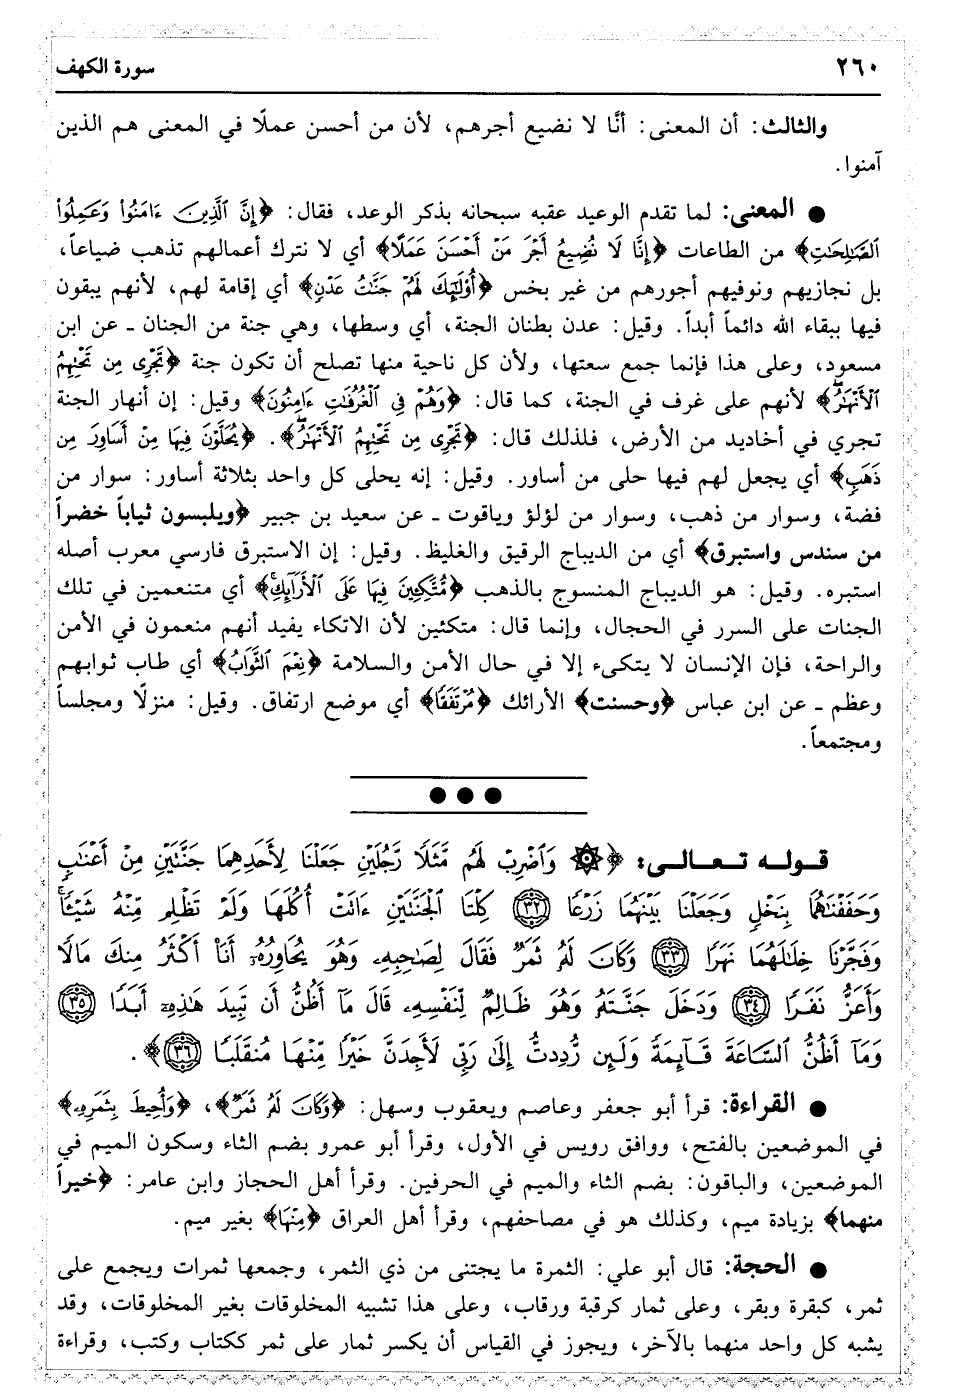 ٢٦٠
سورة الكهف
والثالث: أن المعنى: أنَّا لا نضيع أجرهم، لأن من أحسن عملًا في المعنى هم الذين
آمنوا.
● المعنى: لما تقدم الوعيد عقبه سبحانه بذكر الوعد، فقال: ﴿إِنَّ ٱلَّذِينَ ءَامَنُوا۟ وَعَمِلُوا۟
ٱلصَّـٰلِحَـٰتِ﴾ من الطاعات ﴿إِنَّا لَا نُضِيعُ أَجْرَ مَنْ أَحْسَنَ عَمَلًا﴾ أي لا نترك أعمالهم تذهب ضياعاً،
بل نجازيهم ونوفيهم أجورهم من غير بخس ﴿أُو۟لَـٰٓئِكَ لَهُمْ جَنَّـٰتُ عَدْنٍ﴾ أي إقامة لهم، لأنهم يبقون
فيها ببقاء الله دائماً أبداً. وقيل: عدن بطنان الجنة، أي وسطها، وهي جنة من الجنان ـ عن ابن
مسعود، وعلى هذا فإنما جمع سعتها، ولأن كل ناحية منها تصلح أن تكون جنة ﴿تَجْرِى مِن تَحْتِهِمُ
ٱلْأَنْهَـٰرُ﴾ لأنهم على غرف في الجنة، كما قال: ﴿وَهُمْ فِى ٱلْغُرُفَـٰتِ ءَامِنُونَ﴾ وقيل: إن أنهار الجنة
تجري في أخاديد من الأرض، فلذلك قال: ﴿تَجْرِى مِن تَحْتِهِمُ ٱلْأَنْهَـٰرُ﴾. ﴿يُحَلَّوْنَ فِيهَا مِنْ أَسَاوِرَ مِن
ذَهَبٍ﴾ أي يجعل لهم فيها حلى من أساور. وقيل: إنه يحلى كل واحد بثلاثة أساور: سوار من
فضة، وسوار من ذهب، وسوار من لؤلؤ وياقوت ـ عن سعيد بن جبير ﴿ويلبسون ثياباً خضراً
من سندس واستبرق﴾ أي من الديباج الرقيق والغليظ. وقيل: إن الاستبرق فارسي معرب أصله
استبره. وقيل: هو الديباج المنسوج بالذهب ﴿مُّتَّكِـِٔينَ فِيهَا عَلَى ٱلْأَرَآئِكِ﴾ أي متنعمين في تلك
الجنات على السرر في الحجال، وإنما قال: متكئين لأن الاتكاء يفيد أنهم منعمون في الأمن
والراحة، فإن الإنسان لا يتكىء إلا في حال الأمن والسلامة ﴿نِعْمَ ٱلثَّوَابُ﴾ أي طاب ثوابهم
وعظم ـ عن ابن عباس ﴿وحسنت﴾ الأرائك ﴿مُرْتَفَقًا﴾ أي موضع ارتفاق. وقيل: منزلًا ومجلساً
ومجتمعاً.
● ● ●
قوله تعالى: ﴿۞ وَٱضْرِبْ لَهُم مَّثَلًا رَّجُلَيْنِ جَعَلْنَا لِأَحَدِهِمَا جَنَّتَيْنِ مِنْ أَعْنَـٰبٍ
وَحَفَفْنَـٰهُمَا بِنَخْلٍ وَجَعَلْنَا بَيْنَهُمَا زَرْعًا ٣٢ كِلْتَا ٱلْجَنَّتَيْنِ ءَاتَتْ أُكُلَهَا وَلَمْ تَظْلِم مِّنْهُ شَيْـًٔا
وَفَجَّرْنَا خِلَـٰلَهُمَا نَهَرًا ٣٣ وَكَانَ لَهُۥ ثَمَرٌ فَقَالَ لِصَـٰحِبِهِۦ وَهُوَ يُحَاوِرُهُۥٓ أَنَا۠ أَكْثَرُ مِنكَ مَالًا
وَأَعَزُّ نَفَرًا ٣٤ وَدَخَلَ جَنَّتَهُۥ وَهُوَ ظَالِمٌ لِّنَفْسِهِۦ قَالَ مَآ أَظُنُّ أَن تَبِيدَ هَـٰذِهِۦٓ أَبَدًا ٣٥
وَمَآ أَظُنُّ ٱلسَّاعَةَ قَآئِمَةً وَلَئِن رُّدِدتُّ إِلَىٰ رَبِّى لَأَجِدَنَّ خَيْرًا مِّنْهَا مُنقَلَبًا ٣٦﴾.
● القراءة: قرأ أبو جعفر وعاصم ويعقوب وسهل: ﴿وَكَانَ لَهُۥ ثَمَرٌ﴾، ﴿وَأُحِيطَ بِثَمَرِهِۦ﴾
في الموضعين بالفتح، ووافق رويس في الأول، وقرأ أبو عمرو بضم الثاء وسكون الميم في
الموضعين، والباقون: بضم الثاء والميم في الحرفين. وقرأ أهل الحجاز وابن عامر: ﴿خيراً
منهما﴾ بزيادة ميم، وكذلك هو في مصاحفهم، وقرأ أهل العراق ﴿مِنْهَا﴾ بغير ميم.
● الحجة: قال أبو علي: الثمرة ما يجتنى من ذي الثمر، وجمعها ثمرات ويجمع على
ثمر، كبقرة وبقر، وعلى ثمار كرقبة ورقاب، وعلى هذا تشبيه المخلوقات بغير المخلوقات، وقد
يشبه كل واحد منهما بالآخر، ويجوز في القياس أن يكسر ثمار على ثمر ككتاب وكتب، وقراءة